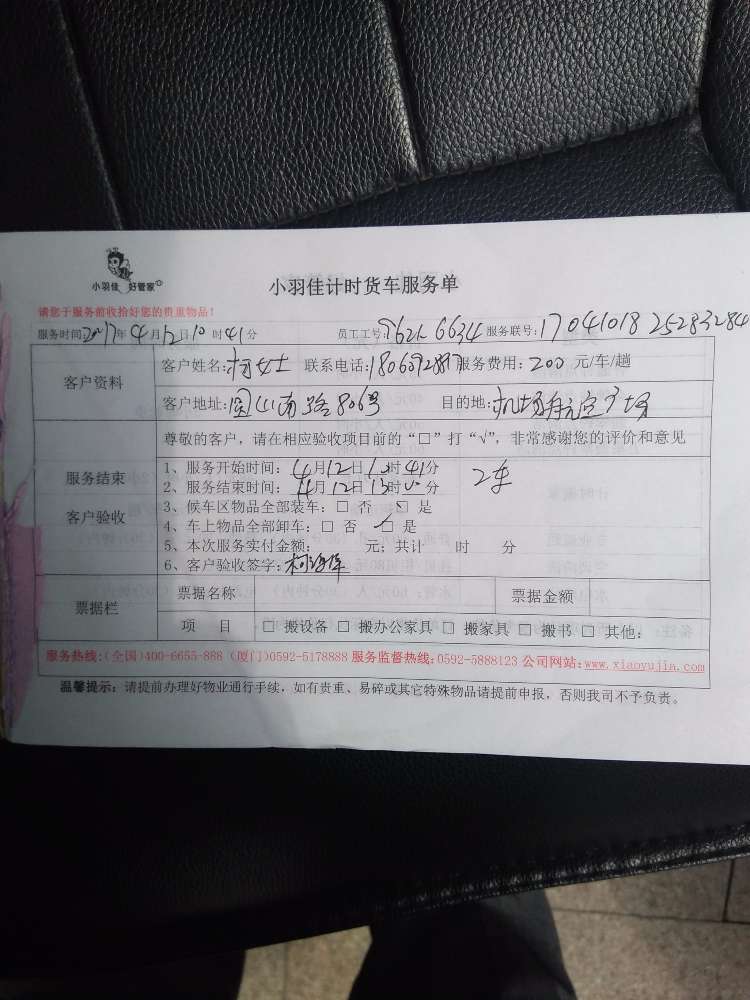 小羽佳 好管家
小羽佳计时货车服务单
请您于服务前收拾好您的贵重物品！
服务时间2017年4月12日10时41分 员工工号: 9621 6634 服务联号: 17041018 25283284
客户资料
客户姓名:柯女士 联系电话: 服务费用: 200 元/车/趟
客户地址: 圆山南路806号 目的地: 机场航空广场
尊敬的客户，请在相应验收项目前的“□”打“√”，非常感谢您的评价和意见
服务结束
客户验收
1、服务开始时间: 4月12日 时41分
2、服务结束时间: 4月12日13时 分
2车
3、候车区物品全部装车: □ 否 □ 是
4、车上物品全部卸车: □ 否 □ 是
5、本次服务实付金额: 元; 共计 时 分
6、客户验收签字: 柯
票据栏
票据名称 票据金额
项 目 □ 搬设备 □ 搬办公家具 □ 搬家具 □ 搬书 □ 其他:
服务热线:(全国)400-6655-888 (厦门)0592-5178888 服务监督热线: 0592-5888123 公司网站: www.xiaoyujia.com
温馨提示: 请提前办理好物业通行手续，如有贵重、易碎或其它特殊物品请提前申报，否则我司不予负责。